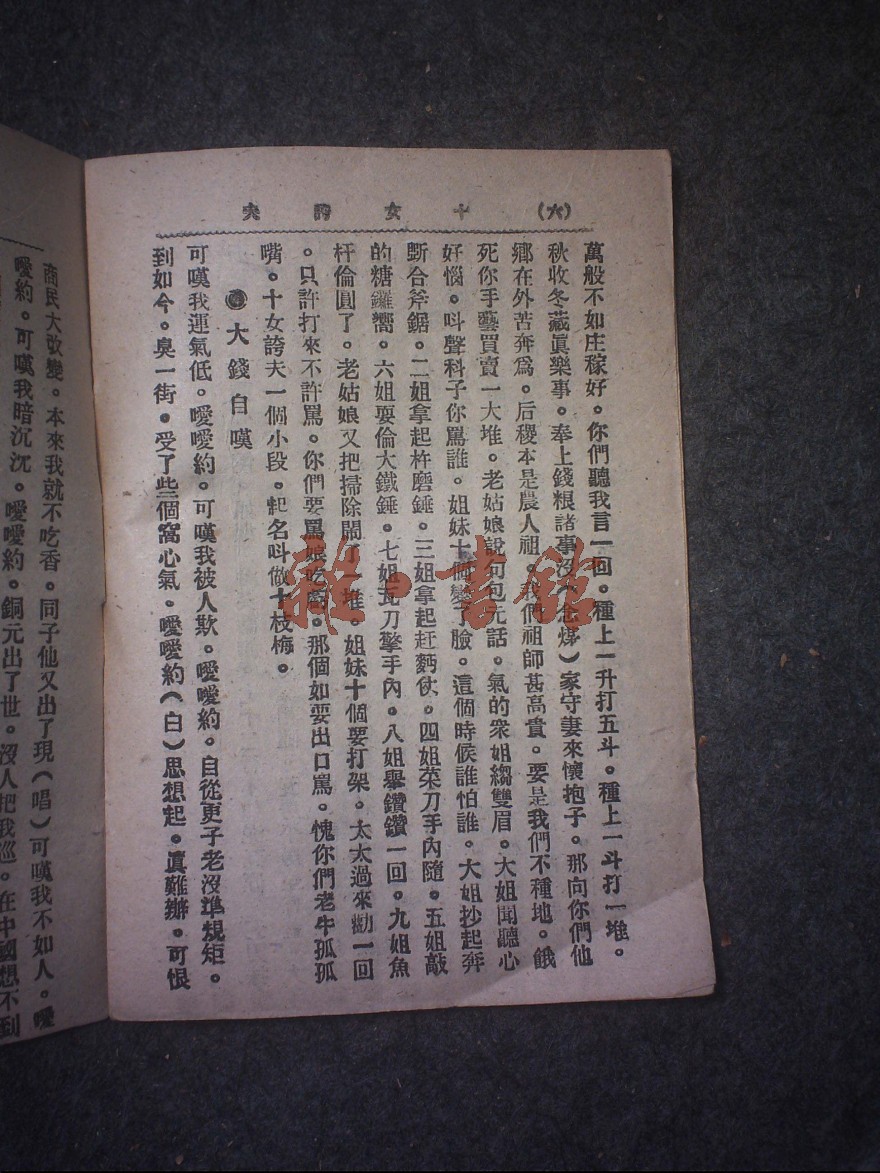 (六) 十女誇夫
萬般不如庄稼好。你們聽我言一回。種上一升打五斗。種上一斗打一堆。
秋收冬藏眞樂事。奉上錢粮諸事沒(念煫)家守妻來懷抱子。那向你們他
鄉在外苦奔爲。后稷本是農人祖。我們祖師甚高貴。要是我們不種地。餓
死你手藝買賣一大堆。老姑娘說句包元話。氣的衆姐縐雙眉。大姐聞聽心
好惱。呌聲科子你罵誰。姐妹十個變了臉。這個時候誰怕誰。大姐抄起奔
斳合斧鋸。二姐拿起杵磨錘。三姐拿起赶麪伏。四姐菜刀手內隨。五姐敲
的糖鑼嚮。六姐耍倫大鐵錘。七姐瓦刀擎手內。八姐舉鑽鑽一回。九姐魚
杆倫圓了。老姑娘又把掃除鬧了一堆。姐妹十個要打架。太太過來勸一回
。只許打來不許罵。你們要罵娘吃虧。那個如要出口罵。愧你們老牛孤孤
嘴。十女誇夫一個小段。起名呌做十枝梅。
大錢自嘆
可嘆我運氣低。噯噯約。可嘆我被人欺。噯噯約。自從更子老沒準規矩。
到如今。臭一街。受了些個窩心氣。噯噯約(白)思想起。眞難辦。可恨
商民大改變。本來我就不吃香。同子他又出了現(唱)可嘆我不如人。噯
噯約。可嘆我暗沉沉。噯噯約。銅元出了世。沒人把我巡。在中國想不到
雜·書館